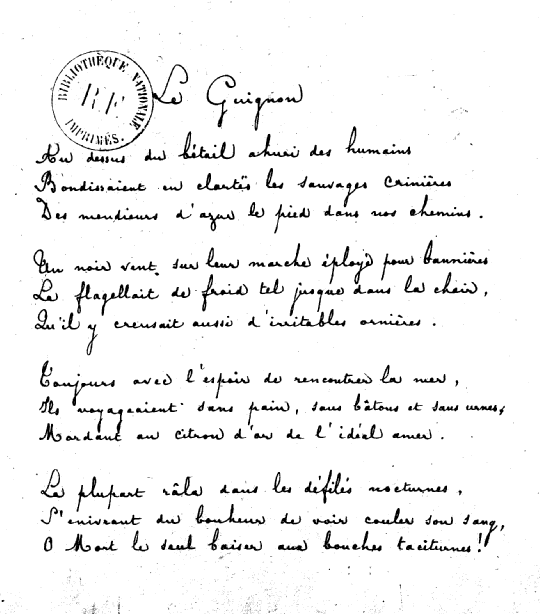 BIBLIOTHÈQUE NATIONALE
R.F.
IMPRIMÉS.
Le Guignon
Au dessus du bétail ahuri des humains
Bondissaient en clartés les sauvages crinières
Des mendieurs d'azur le pied dans nos chemins.
Un noir vent sur leur marche éployé pour bannières
La flagellait de froid tel jusque dans la chair,
Qu'il y creusait aussi d'irritables ornières.
Toujours avec l'espoir de rencontrer la mer,
Ils voyageaient sans pain, sans bâtons et sans urnes,
Mordant au citron d'or de l'idéal amer.
La plupart râla dans les défilés nocturnes,
S'enivrant du bonheur de voir couler son sang,
O Mort le seul baiser aux bouches taciturnes!